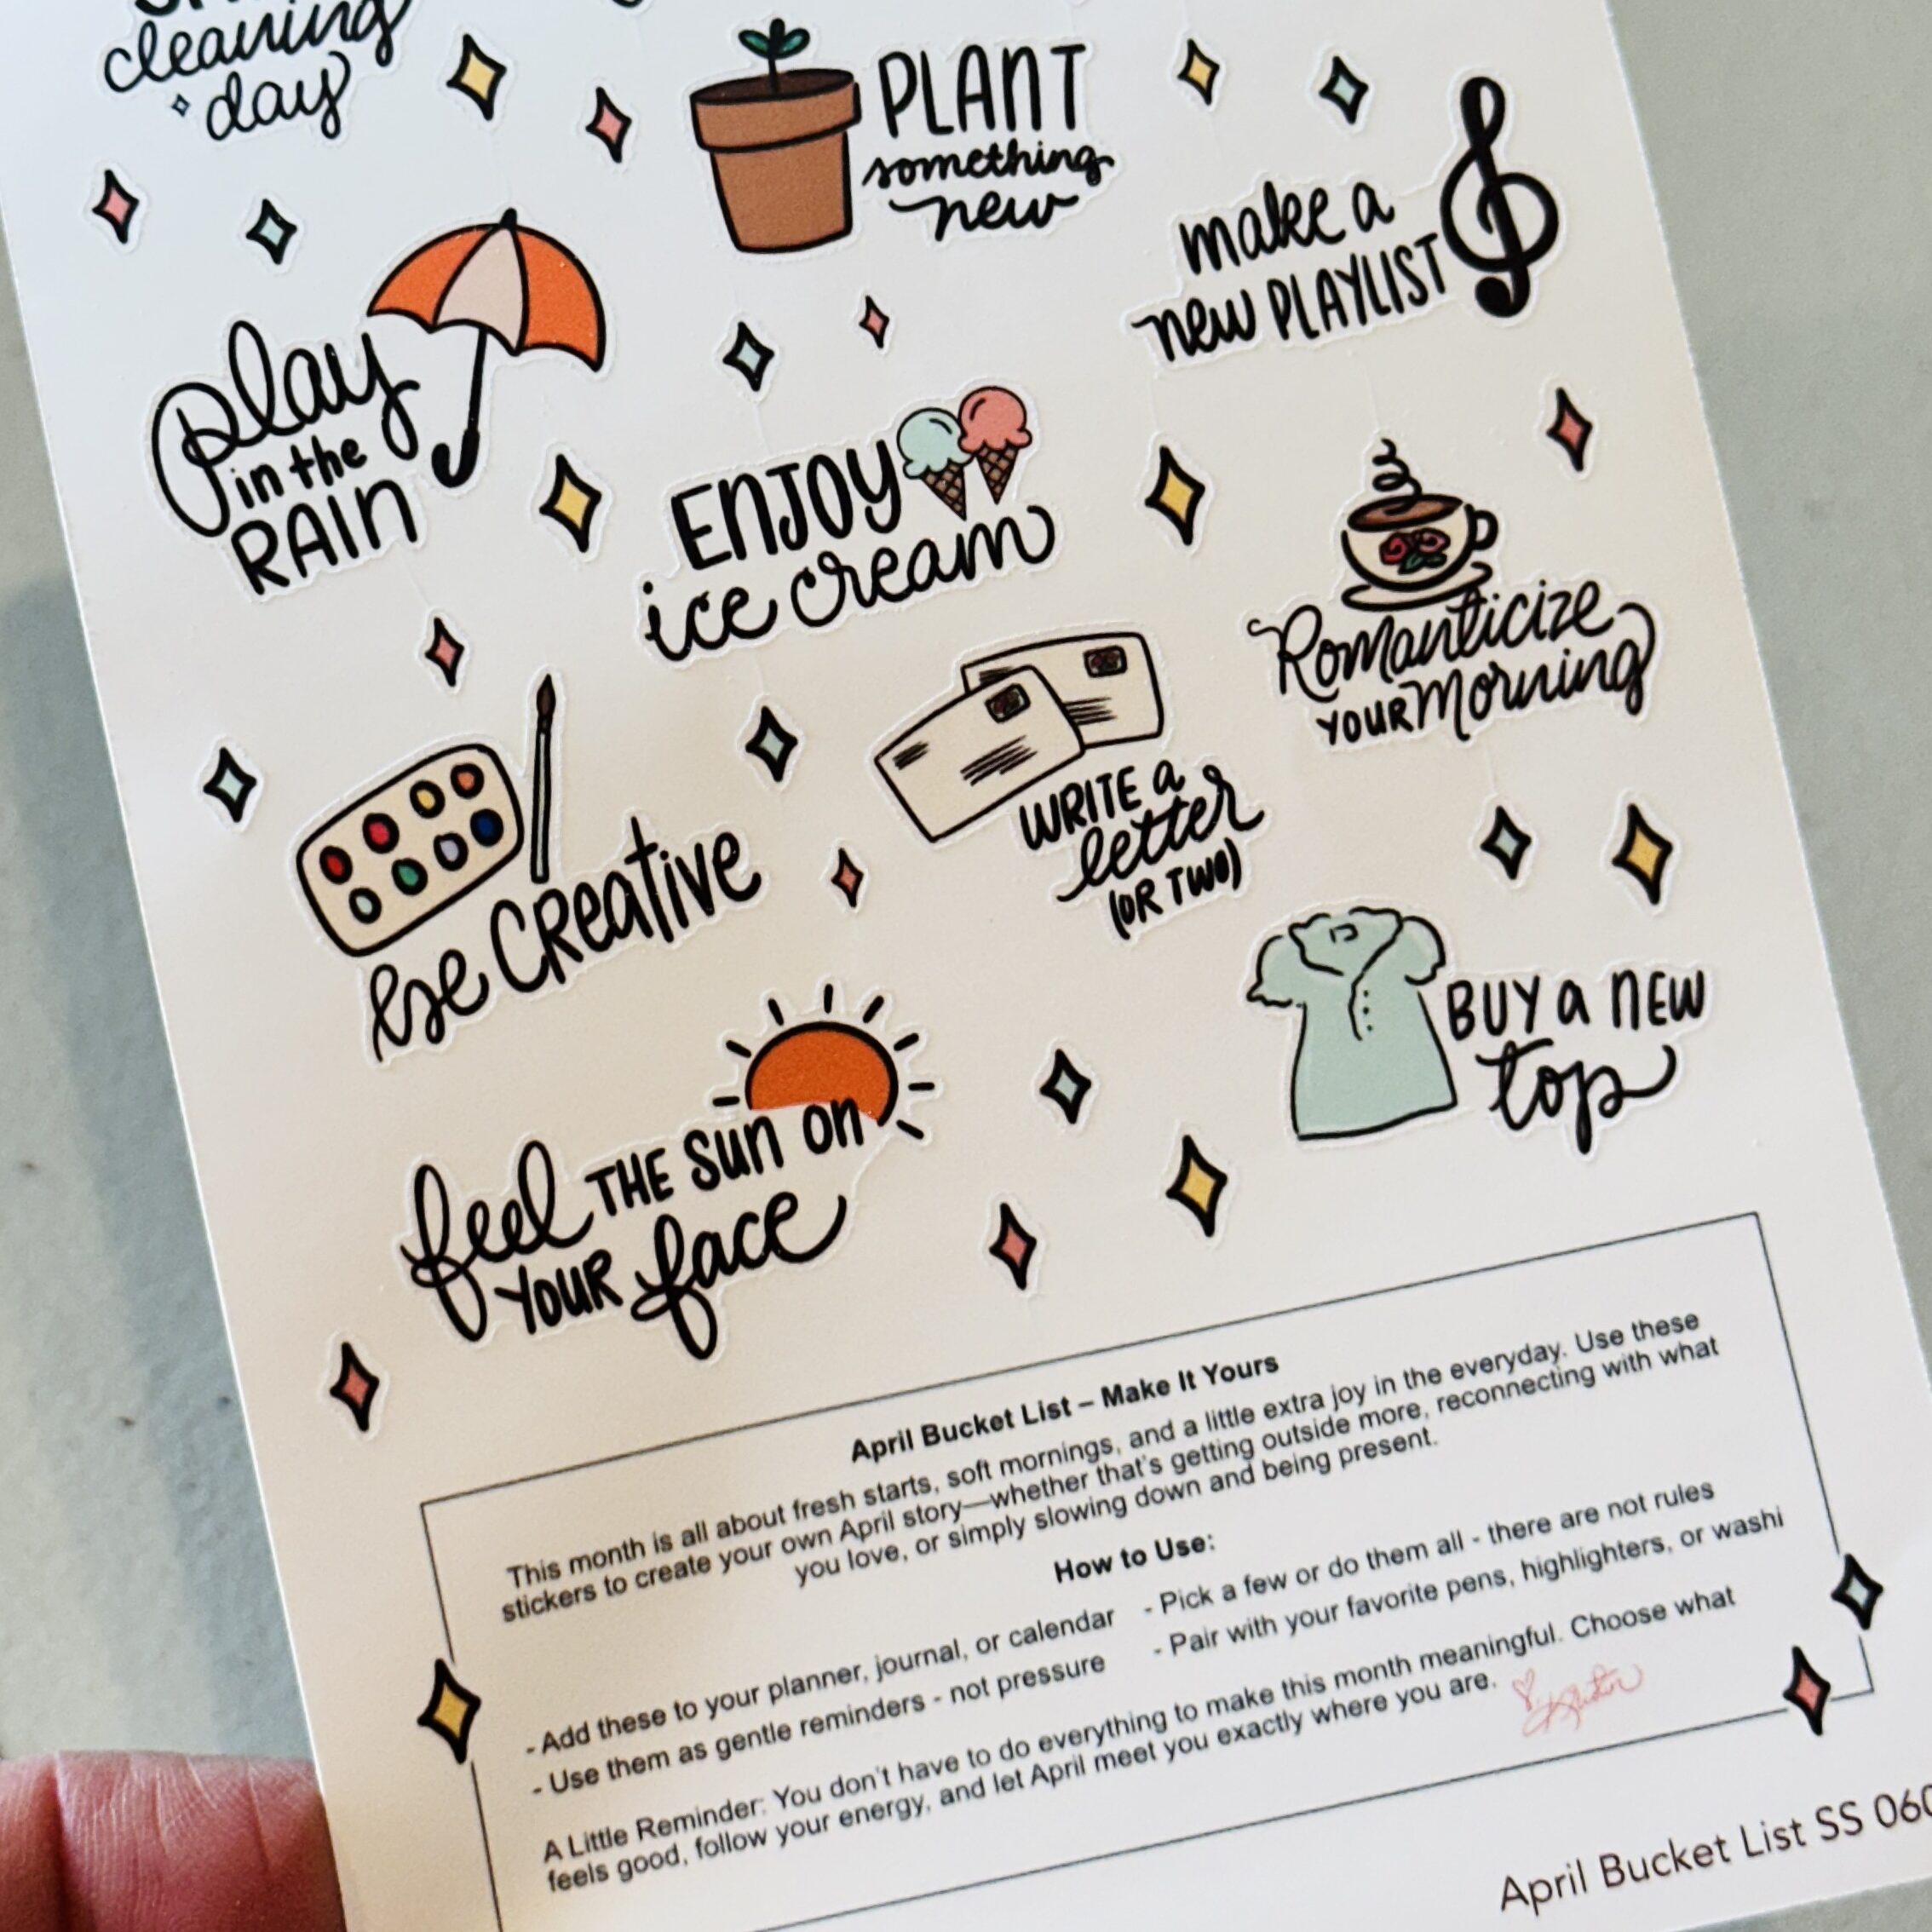 cleaning
day
PLANT
something
new
make a
new PLAYLIST
play
in the
RAIN
ENJOY
ice cream
Romanticize
YOUR Morning
WRITE a
letter
(OR TWO)
be CReative
BUY a NEW
top
feel THE Sun on
YOUR face
April Bucket List – Make It Yours
This month is all about fresh starts, soft mornings, and a little extra joy in the everyday. Use these
stickers to create your own April story—whether that's getting outside more, reconnecting with what
you love, or simply slowing down and being present.
How to Use:
- Add these to your planner, journal, or calendar
- Use them as gentle reminders - not pressure
- Pick a few or do them all - there are not rules
- Pair with your favorite pens, highlighters, or washi
A Little Reminder: You don't have to do everything to make this month meaningful. Choose what
feels good, follow your energy, and let April meet you exactly where you are.
April Bucket List SS 060